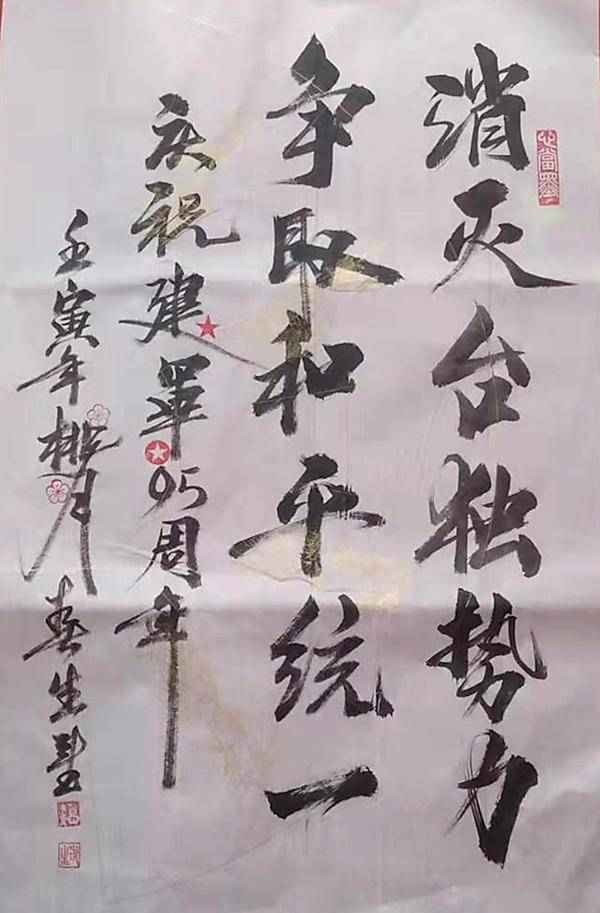 消灭台独势力
争取和平统一
庆祝建军95周年
壬寅年桃月
春生墨